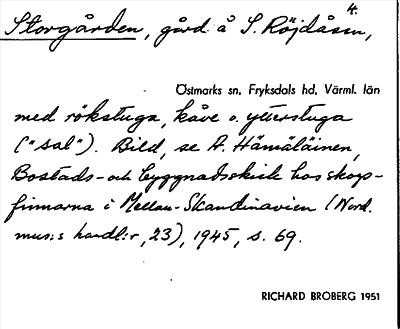 4.
Storgården, gård å S. Röjdåsen,
Östmarks sn, Fryksdals hd, Värml. län
med rökstuga, kåve o. ytterstuga
("sal"). Bild, se A. Hämäläinen,
Bostads- och byggnadsskick hos skogs-
finnarna i Mellan-Skandinavien (Nord.
mus:s handl:r, 23), 1945, s. 69.
RICHARD BROBERG 1951